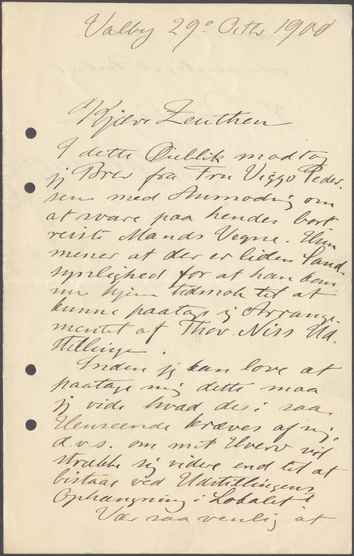 Valby 29º Octb 1900
Kjære Zeuthen
I dette Øieblik modtog
jeg Brev fra Fru Viggo Peder-
sen med Anmodnig om
at svare paa hendes bort
reiste Mands Vegne. Hun
mener at der er liden Sand-
synlighed for at han kom
mer hjem tidsnok til at
kunne paatage sig Arrange-
mentet af Thor. Niss Ud-
stillinge.
Inden jeg kan love at
paatage mig dette maa
jeg vide hvad der i saa
Henseende kræves af mig,
d.v.s. om mit Hverv vil
strække sig videre end til at
bistaae ved Udstillingens
Ophængning i Lokalet
Vær saa venlig at